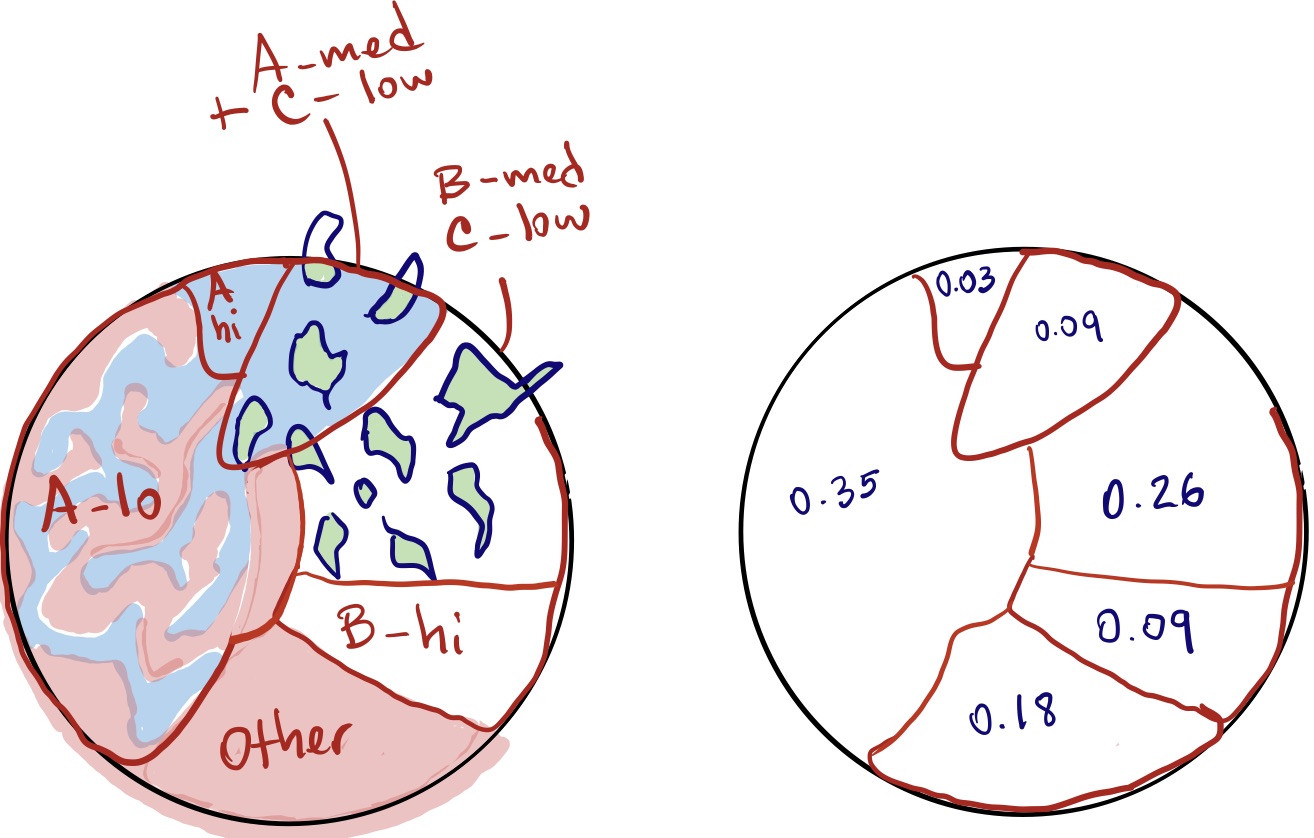 A-med
+ C-low
B-med
C-low
A
hi
A-lo
B-hi
Other
0.03
0.09
0.35
0.26
0.09
0.18